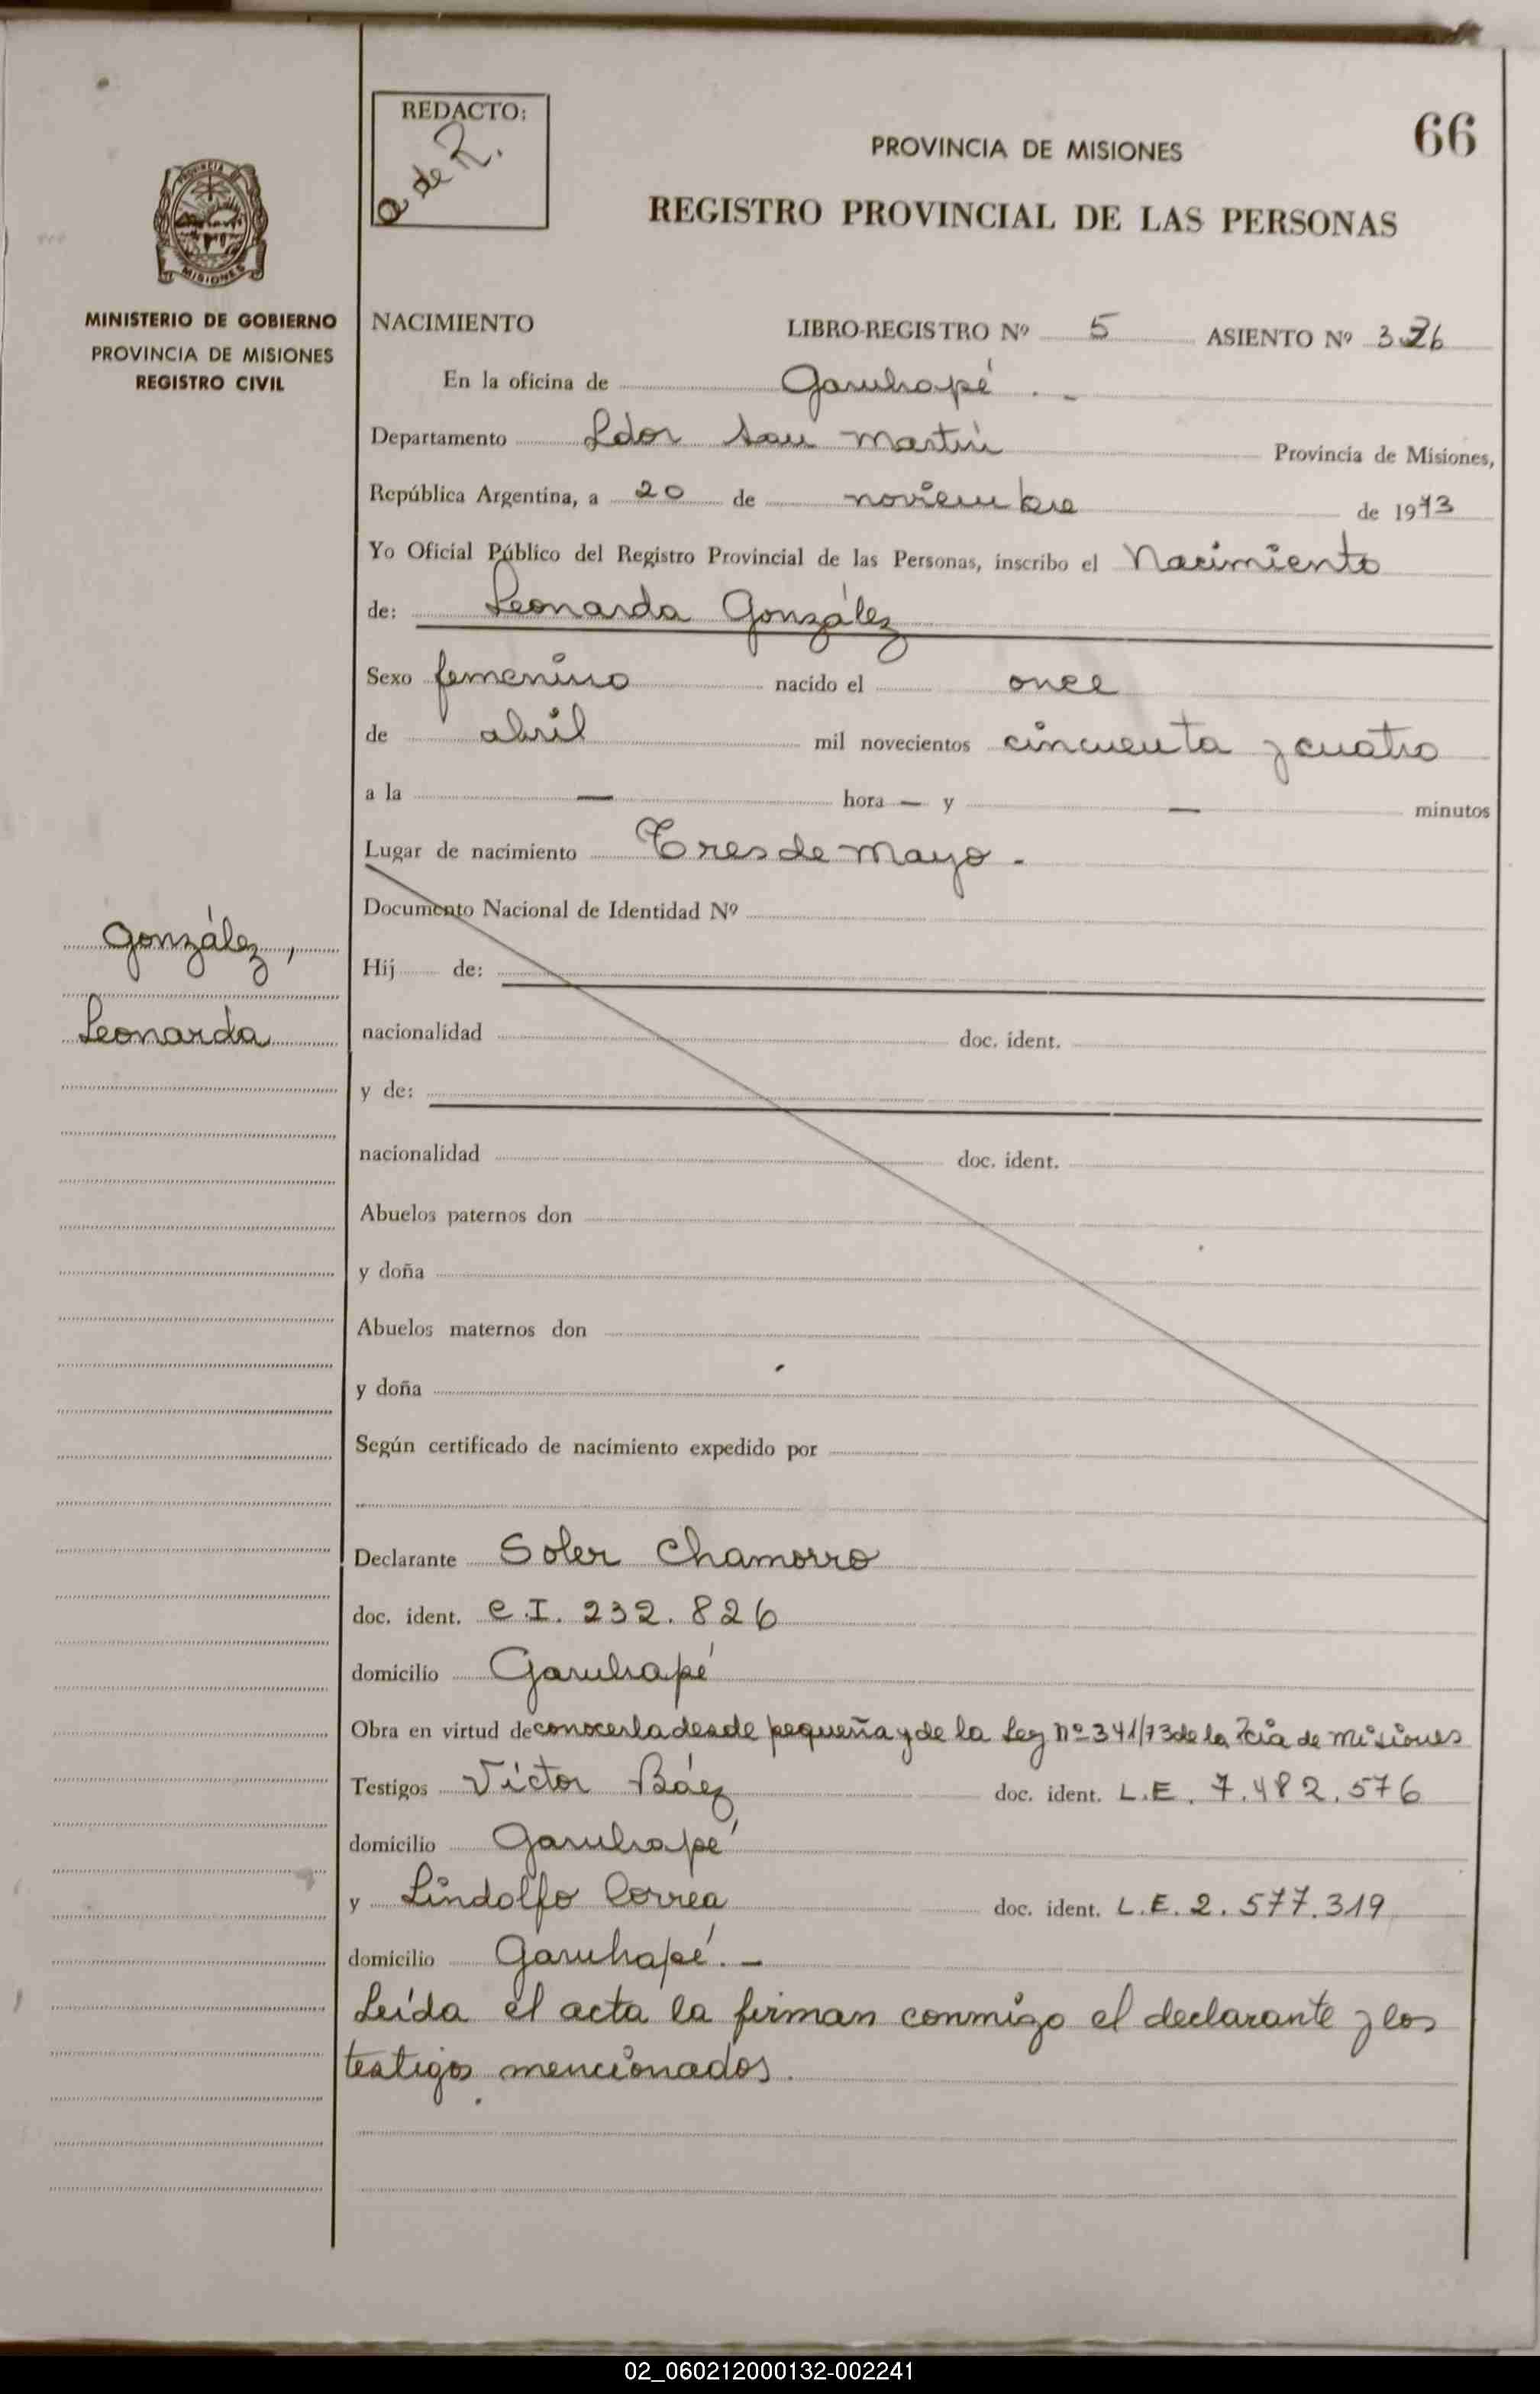 REDACTO:
a de R.
66
PROVINCIA DE MISIONES
REGISTRO PROVINCIAL DE LAS PERSONAS
PROVINCIA DE
MISIONES
MINISTERIO DE GOBIERNO
PROVINCIA DE MISIONES
REGISTRO CIVIL
NACIMIENTO LIBRO-REGISTRO Nº 5 ASIENTO Nº 326
En la oficina de Garuhapé . -
Departamento Ldor San Martín Provincia de Misiones,
República Argentina, a 20 de noviembre de 1973
Yo Oficial Público del Registro Provincial de las Personas, inscribo el Nacimiento
de: Leonarda González
Sexo femenino nacido el once
de abril mil novecientos cincuenta y cuatro
a la — hora — y — minutos
Lugar de nacimiento Tres de Mayo -
Documento Nacional de Identidad Nº
González,
Hij de:
Leonarda
nacionalidad doc. ident.
y de:
nacionalidad doc. ident.
Abuelos paternos don
y doña
Abuelos maternos don
y doña
Según certificado de nacimiento expedido por
Declarante Soler Chamorro
doc. ident. C.I. 232.826
domicilio Garuhapé
Obra en virtud de conocerla desde pequeña y de la Ley Nº 341/73 de la Pcia de Misiones
Testigos Víctor Báez doc. ident. L.E. 7.482.576
domicilio Garuhapé
y Lindolfo Correa doc. ident. L.E. 2.577.319
domicilio Garuhapé. -
Leída el acta la firman conmigo el declarante y los
testigos mencionados.
02_060212000132-002241